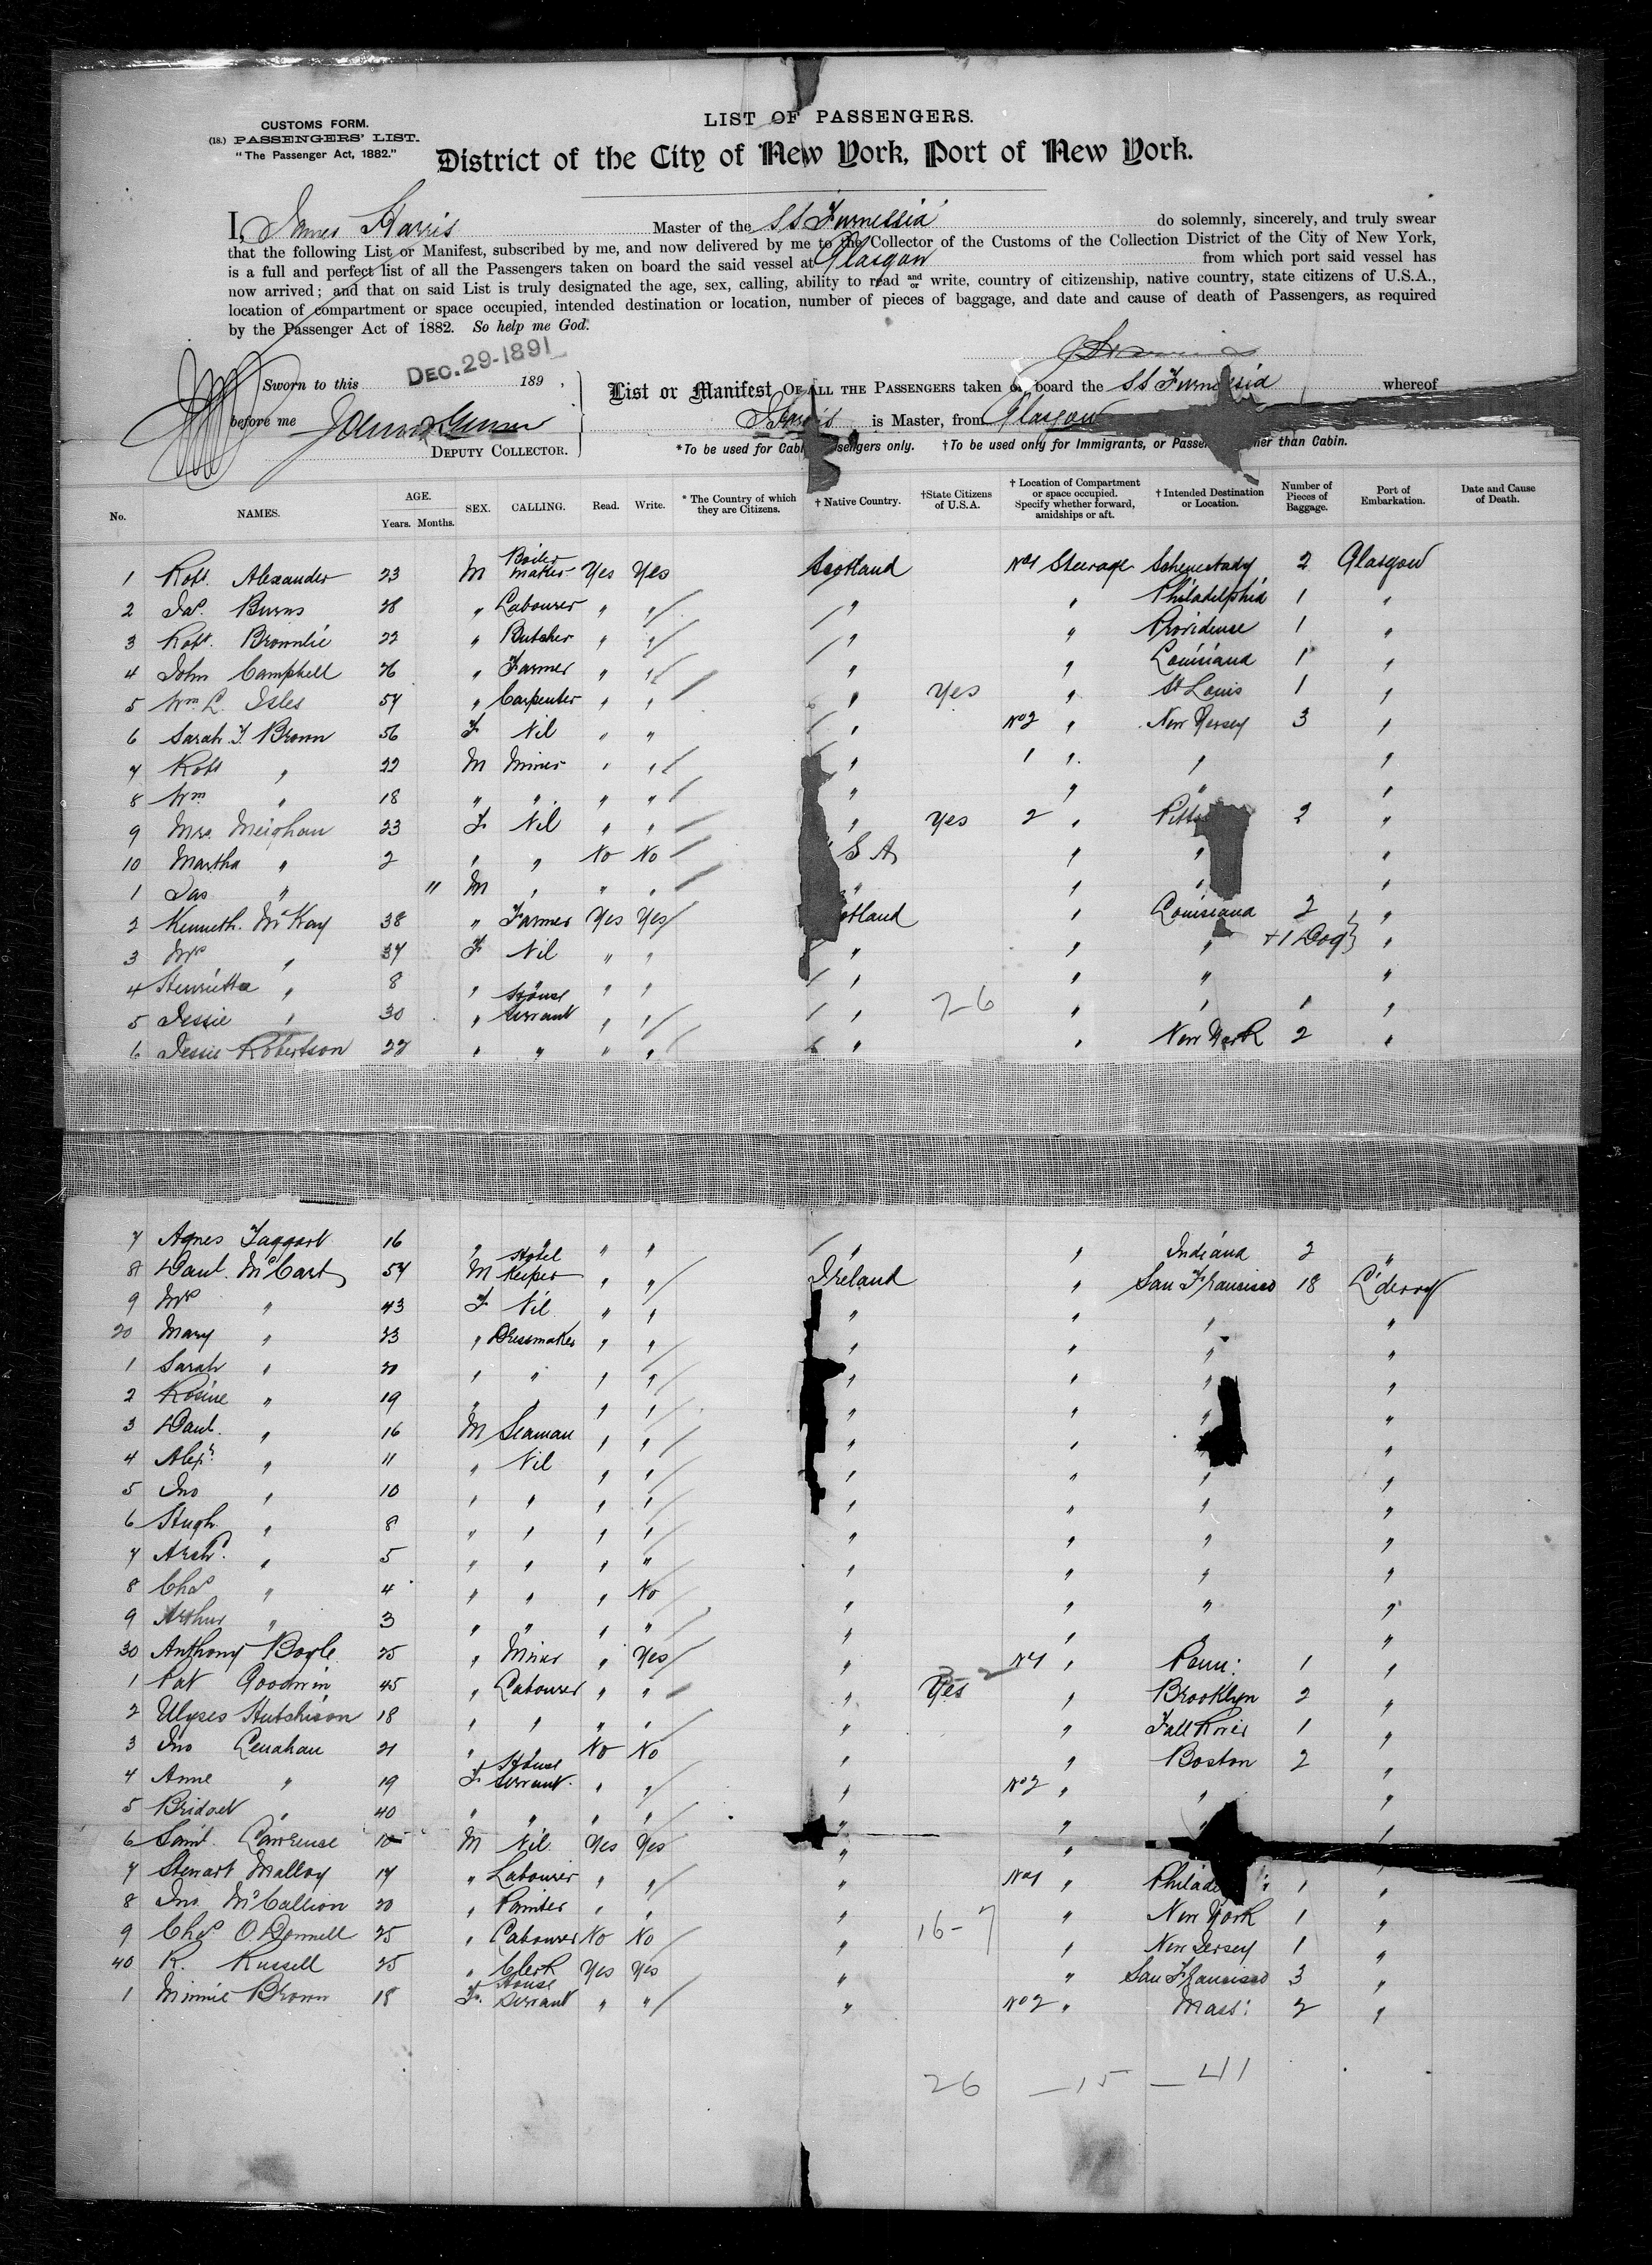 CUSTOMS FORM.
(18.) PASSENGERS' LIST.
"The Passenger Act, 1882."
LIST OF PASSENGERS.
District of the City of New York, Port of New York.
I, James Harris Master of the SS Furnessia do solemnly, sincerely, and truly swear
that the following List or Manifest, subscribed by me, and now delivered by me to the Collector of the Customs of the Collection District of the City of New York,
is a full and perfect list of all the Passengers taken on board the said vessel at Glasgow from which port said vessel has
now arrived; and that on said List is truly designated the age, sex, calling, ability to read and or write, country of citizenship, native country, state citizens of U.S.A.,
location of compartment or space occupied, intended destination or location, number of pieces of baggage, and date and cause of death of Passengers, as required
by the Passenger Act of 1882. So help me God.
Sworn to this DEC. 29-1891 189 ,
before me
DEPUTY COLLECTOR.
List or Manifest OF ALL THE PASSENGERS taken on board the SS Furnessia whereof
Harris is Master, from Glasgow
*To be used for Cabin Passengers only. †To be used only for Immigrants, or Passengers other than Cabin.
No. NAMES. AGE. Years. Months. SEX. CALLING. Read. Write. * The Country of which they are Citizens. † Native Country. †State Citizens of U.S.A. † Location of Compartment or space occupied. Specify whether forward, amidships or aft. † Intended Destination or Location. Number of Pieces of Baggage. Port of Embarkation. Date and Cause of Death.
1 Robt. Alexander 23 M Boiler maker Yes Yes Scotland No 1 Steerage Schenectady 2 Glasgow
2 Jas. Burns 28 " Labourer " " " " Philadelphia 1 "
3 Robt. Brownlie 22 " Butcher " " " " Providence 1 "
4 John Campbell 26 " Farmer " " " " Louisiana 1 "
5 Wm L. Isles 54 " Carpenter " " " Yes " St Louis 1 "
6 Sarah J. Brown 56 F Nil " " " No 2 " New Jersey 3 "
7 Robt " 22 M Miner " " " 1 " " "
8 Wm " 18 " " " " " " " "
9 Mrs Meighan 23 F Nil " " " Yes 2 " Pitts 2 "
10 Martha " 2 " " No No S A " " "
1 Jas " 11 M " " " " " " "
2 Kenneth McKay 38 " Farmer Yes Yes otland " Louisiana 2 "
3 Mrs " 37 F Nil " " " " " +1 Dog "
4 Henrietta " 8 " " " " " " "
5 Jessie " 30 " House Servant " " " 7-6 " " 1 "
6 Jessie Robertson 22 " " " " " " New York 2 "
7 Agnes Taggart 16 " " " " " " Indiana 2 "
8 Danl. McCart 54 M Hotel Keeper " " Ireland " San Francisco 18 L'derry
9 Mrs " 43 F Nil " " " " " "
20 Mary " 23 " Dressmaker " " " " " "
1 Sarah " 21 " " " " " " " "
2 Rosine " 19 " " " " " " "
3 Danl. " 16 M Seaman " " " " " "
4 Alexr. " 11 " Nil " " " " "
5 Jno " 10 " " " " " " " "
6 Hugh " 8 " " " " " " " "
7 Archd. " 5 " " " " " " " "
8 Chas " 4 " " " No " " " "
9 Arthur " 3 " " " " " " " "
30 Anthony Boyle 25 " Miner " Yes " No 1 " Penn: 1 "
1 Pat Goodwin 45 " Labourer " " " Yes " Brooklyn 2 "
2 Ulyses Hutchison 18 " " " " " " Fall River 1 "
3 Jno Lenahan 21 " " No No " " Boston 2 "
4 Anne " 19 F House Servant " " " No 2 " " "
5 Bridget " 40 " " " " " " "
6 Saml. Lawrence 10 M Nil Yes Yes " " "
7 Stewart Malloy 17 " Labourer " " " No 1 " Philade : 1 "
8 Jno. McCallion 20 " Painter " " " " New York 1 "
9 Chas O'Donnell 25 " Labourer No No " 16-7 " New Jersey 1 "
40 R. Russell 25 " Clerk Yes Yes " " San Francisco 3 "
1 Minnie Brown 18 F. House Servant " " " No 2 " Mass: 2 "
26 - 15 - 41